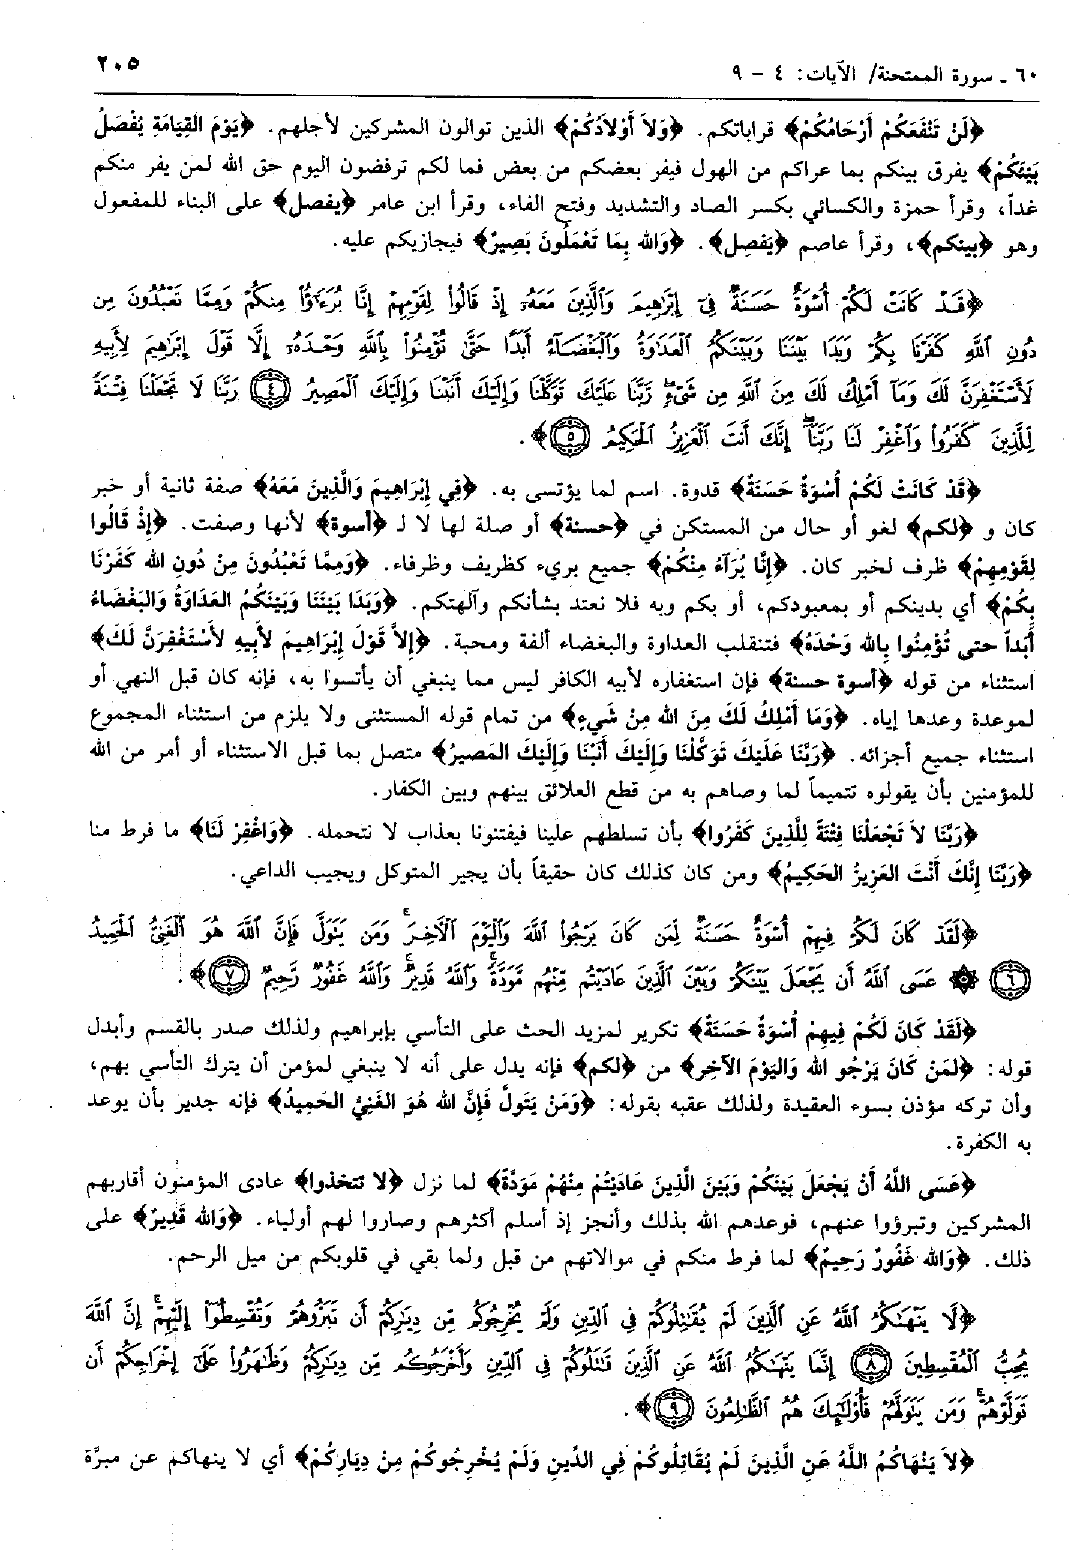 ٦٠ ـ سورة الممتحنة/ الآيات: ٤ - ٩
٢٠٥
﴿لَنْ تَنْفَعَكُمْ أَرْحَامُكُمْ﴾ قراباتكم. ﴿وَلاَ أَوْلاَدُكُمْ﴾ الذين توالون المشركين لأجلهم. ﴿يَوْمَ القِيَامَةِ يُفْصَلُ
بَيْنَكُمْ﴾ يفرق بينكم بما عراكم من الهول فيفر بعضكم من بعض فما لكم ترفضون اليوم حق الله لمن يفر منكم
غداً، وقرأ حمزة والكسائي بكسر الصاد والتشديد وفتح الفاء، وقرأ ابن عامر ﴿يفصل﴾ على البناء للمفعول
وهو ﴿بينكم﴾، وقرأ عاصم ﴿يَفصل﴾. ﴿وَالله بِمَا تَعْمَلُونَ بَصِيرٌ﴾ فيجازيكم عليه.
﴿قَدْ كَانَتْ لَكُمْ أُسْوَةٌ حَسَنَةٌ فِىٓ إِبْرَٰهِيمَ وَٱلَّذِينَ مَعَهُۥٓ إِذْ قَالُوا۟ لِقَوْمِهِمْ إِنَّا بُرَءَٰٓؤُا۟ مِنكُمْ وَمِمَّا تَعْبُدُونَ مِن
دُونِ ٱللَّهِ كَفَرْنَا بِكُمْ وَبَدَا بَيْنَنَا وَبَيْنَكُمُ ٱلْعَدَٰوَةُ وَٱلْبَغْضَآءُ أَبَدًا حَتَّىٰ تُؤْمِنُوا۟ بِٱللَّهِ وَحْدَهُۥٓ إِلَّا قَوْلَ إِبْرَٰهِيمَ لِأَبِيهِ
لَأَسْتَغْفِرَنَّ لَكَ وَمَآ أَمْلِكُ لَكَ مِنَ ٱللَّهِ مِن شَىْءٍ رَّبَّنَا عَلَيْكَ تَوَكَّلْنَا وَإِلَيْكَ أَنَبْنَا وَإِلَيْكَ ٱلْمَصِيرُ ٤ رَبَّنَا لَا تَجْعَلْنَا فِتْنَةً
لِّلَّذِينَ كَفَرُوا۟ وَٱغْفِرْ لَنَا رَبَّنَآ إِنَّكَ أَنتَ ٱلْعَزِيزُ ٱلْحَكِيمُ ٥﴾.
﴿قَدْ كَانَتْ لَكُمْ أُسْوَةٌ حَسَنَةٌ﴾ قدوة. اسم لما يؤتسى به. ﴿فِي إِبْرَاهِيمَ وَالَّذِينَ مَعَهُ﴾ صفة ثانية أو خبر
كان و ﴿لكم﴾ لغو أو حال من المستكن في ﴿حسنة﴾ أو صلة لها لا لـ ﴿أسوة﴾ لأنها وصفت. ﴿إِذْ قَالُوا
لِقَوْمِهِمْ﴾ ظرف لخبر كان. ﴿إِنَّا بُرَآءُ مِنْكُمْ﴾ جميع بريء كظريف وظرفاء. ﴿وَمِمَّا تَعْبُدُونَ مِنْ دُونِ الله كَفَرْنَا
بِكُمْ﴾ أي بدينكم أو بمعبودكم، أو بكم وبه فلا نعتد بشأنكم وآلهتكم. ﴿وَبَدَا بَيْنَنَا وَبَيْنَكُمُ العَدَاوَةُ وَالبَغْضَاءُ
أَبَداً حتى تُؤْمِنُوا بِالله وَحْدَهُ﴾ فتنقلب العداوة والبغضاء ألفة ومحبة. ﴿إِلاَّ قَوْلَ إِبْرَاهِيمَ لأَبِيهِ لأَسْتَغْفِرَنَّ لَكَ﴾
استثناء من قوله ﴿أسوة حسنة﴾ فإن استغفاره لأبيه الكافر ليس مما ينبغي أن يأتسوا به، فإنه كان قبل النهي أو
لموعدة وعدها إياه. ﴿وَمَا أَمْلِكُ لَكَ مِنَ الله مِنْ شَيءٍ﴾ من تمام قوله المستثنى ولا يلزم من استثناء المجموع
استثناء جميع أجزائه. ﴿رَبَّنَا عَلَيْكَ تَوَكَّلْنَا وَإِلَيْكَ أَنَبْنَا وَإِلَيْكَ المَصيرُ﴾ متصل بما قبل الاستثناء أو أمر من الله
للمؤمنين بأن يقولوه تتميماً لما وصاهم به من قطع العلائق بينهم وبين الكفار.
﴿رَبَّنَا لاَ تَجْعَلْنَا فِتْنَةً لِلَّذِينَ كَفَرُوا﴾ بأن تسلطهم علينا فيفتنونا بعذاب لا نتحمله. ﴿وَاغْفِرْ لَنَا﴾ ما فرط منا
﴿رَبَّنَا إِنَّكَ أَنْتَ العَزِيزُ الحَكِيمُ﴾ ومن كان كذلك كان حقيقاً بأن يجير المتوكل ويجيب الداعي.
﴿لَقَدْ كَانَ لَكُمْ فِيهِمْ أُسْوَةٌ حَسَنَةٌ لِّمَن كَانَ يَرْجُوا۟ ٱللَّهَ وَٱلْيَوْمَ ٱلْأَخِرَ وَمَن يَتَوَلَّ فَإِنَّ ٱللَّهَ هُوَ ٱلْغَنِىُّ ٱلْحَمِيدُ
٦ ۞ عَسَى ٱللَّهُ أَن يَجْعَلَ بَيْنَكُمْ وَبَيْنَ ٱلَّذِينَ عَادَيْتُم مِّنْهُم مَّوَدَّةً وَٱللَّهُ قَدِيرٌ وَٱللَّهُ غَفُورٌ رَّحِيمٌ ٧﴾.
﴿لَقَدْ كَانَ لَكُمْ فِيهِمْ أُسْوَةٌ حَسَنَةٌ﴾ تكرير لمزيد الحث على التأسي بإبراهيم ولذلك صدر بالقسم وأبدل
قوله: ﴿لمَنْ كَانَ يَرْجُو الله وَاليَوْمَ الآخِر﴾ من ﴿لكم﴾ فإنه يدل على أنه لا ينبغي لمؤمن أن يترك التأسي بهم،
وأن تركه مؤذن بسوء العقيدة ولذلك عقبه بقوله: ﴿وَمَنْ يَتَولَّ فَإِنَّ الله هُوَ الغَنِيُّ الحَمِيدُ﴾ فإنه جدير بأن يوعد
به الكفرة.
﴿عَسَى اللَّهُ أَنْ يَجْعَلَ بَيْنَكُمْ وَبَيْنَ الَّذِينَ عَادَيْتُمْ مِنْهُمْ مَوَدَّةً﴾ لما نزل ﴿لا تتخذوا﴾ عادى المؤمنون أقاربهم
المشركين وتبرؤوا عنهم، فوعدهم الله بذلك وأنجز إذ أسلم أكثرهم وصاروا لهم أولياء. ﴿وَالله قَدِيرٌ﴾ على
ذلك. ﴿وَالله غَفُورٌ رَحِيمٌ﴾ لما فرط منكم في موالاتهم من قبل ولما بقي في قلوبكم من ميل الرحم.
﴿لَا يَنْهَىٰكُمُ ٱللَّهُ عَنِ ٱلَّذِينَ لَمْ يُقَٰتِلُوكُمْ فِى ٱلدِّينِ وَلَمْ يُخْرِجُوكُم مِّن دِيَٰرِكُمْ أَن تَبَرُّوهُمْ وَتُقْسِطُوٓا۟ إِلَيْهِمْ إِنَّ ٱللَّهَ
يُحِبُّ ٱلْمُقْسِطِينَ ٨ إِنَّمَا يَنْهَىٰكُمُ ٱللَّهُ عَنِ ٱلَّذِينَ قَٰتَلُوكُمْ فِى ٱلدِّينِ وَأَخْرَجُوكُم مِّن دِيَٰرِكُمْ وَظَٰهَرُوا۟ عَلَىٰٓ إِخْرَاجِكُمْ أَن
تَوَلَّوْهُمْ وَمَن يَتَوَلَّهُمْ فَأُو۟لَٰٓئِكَ هُمُ ٱلظَّٰلِمُونَ ٩﴾.
﴿لاَ يَنْهَاكُمُ اللَّهُ عَنِ الَّذِينَ لَمْ يُقَاتِلُوكُمْ فِي الدِّينِ وَلَمْ يُخْرِجُوكُمْ مِنْ دِيَارِكُمْ﴾ أي لا ينهاكم عن مبرَّة